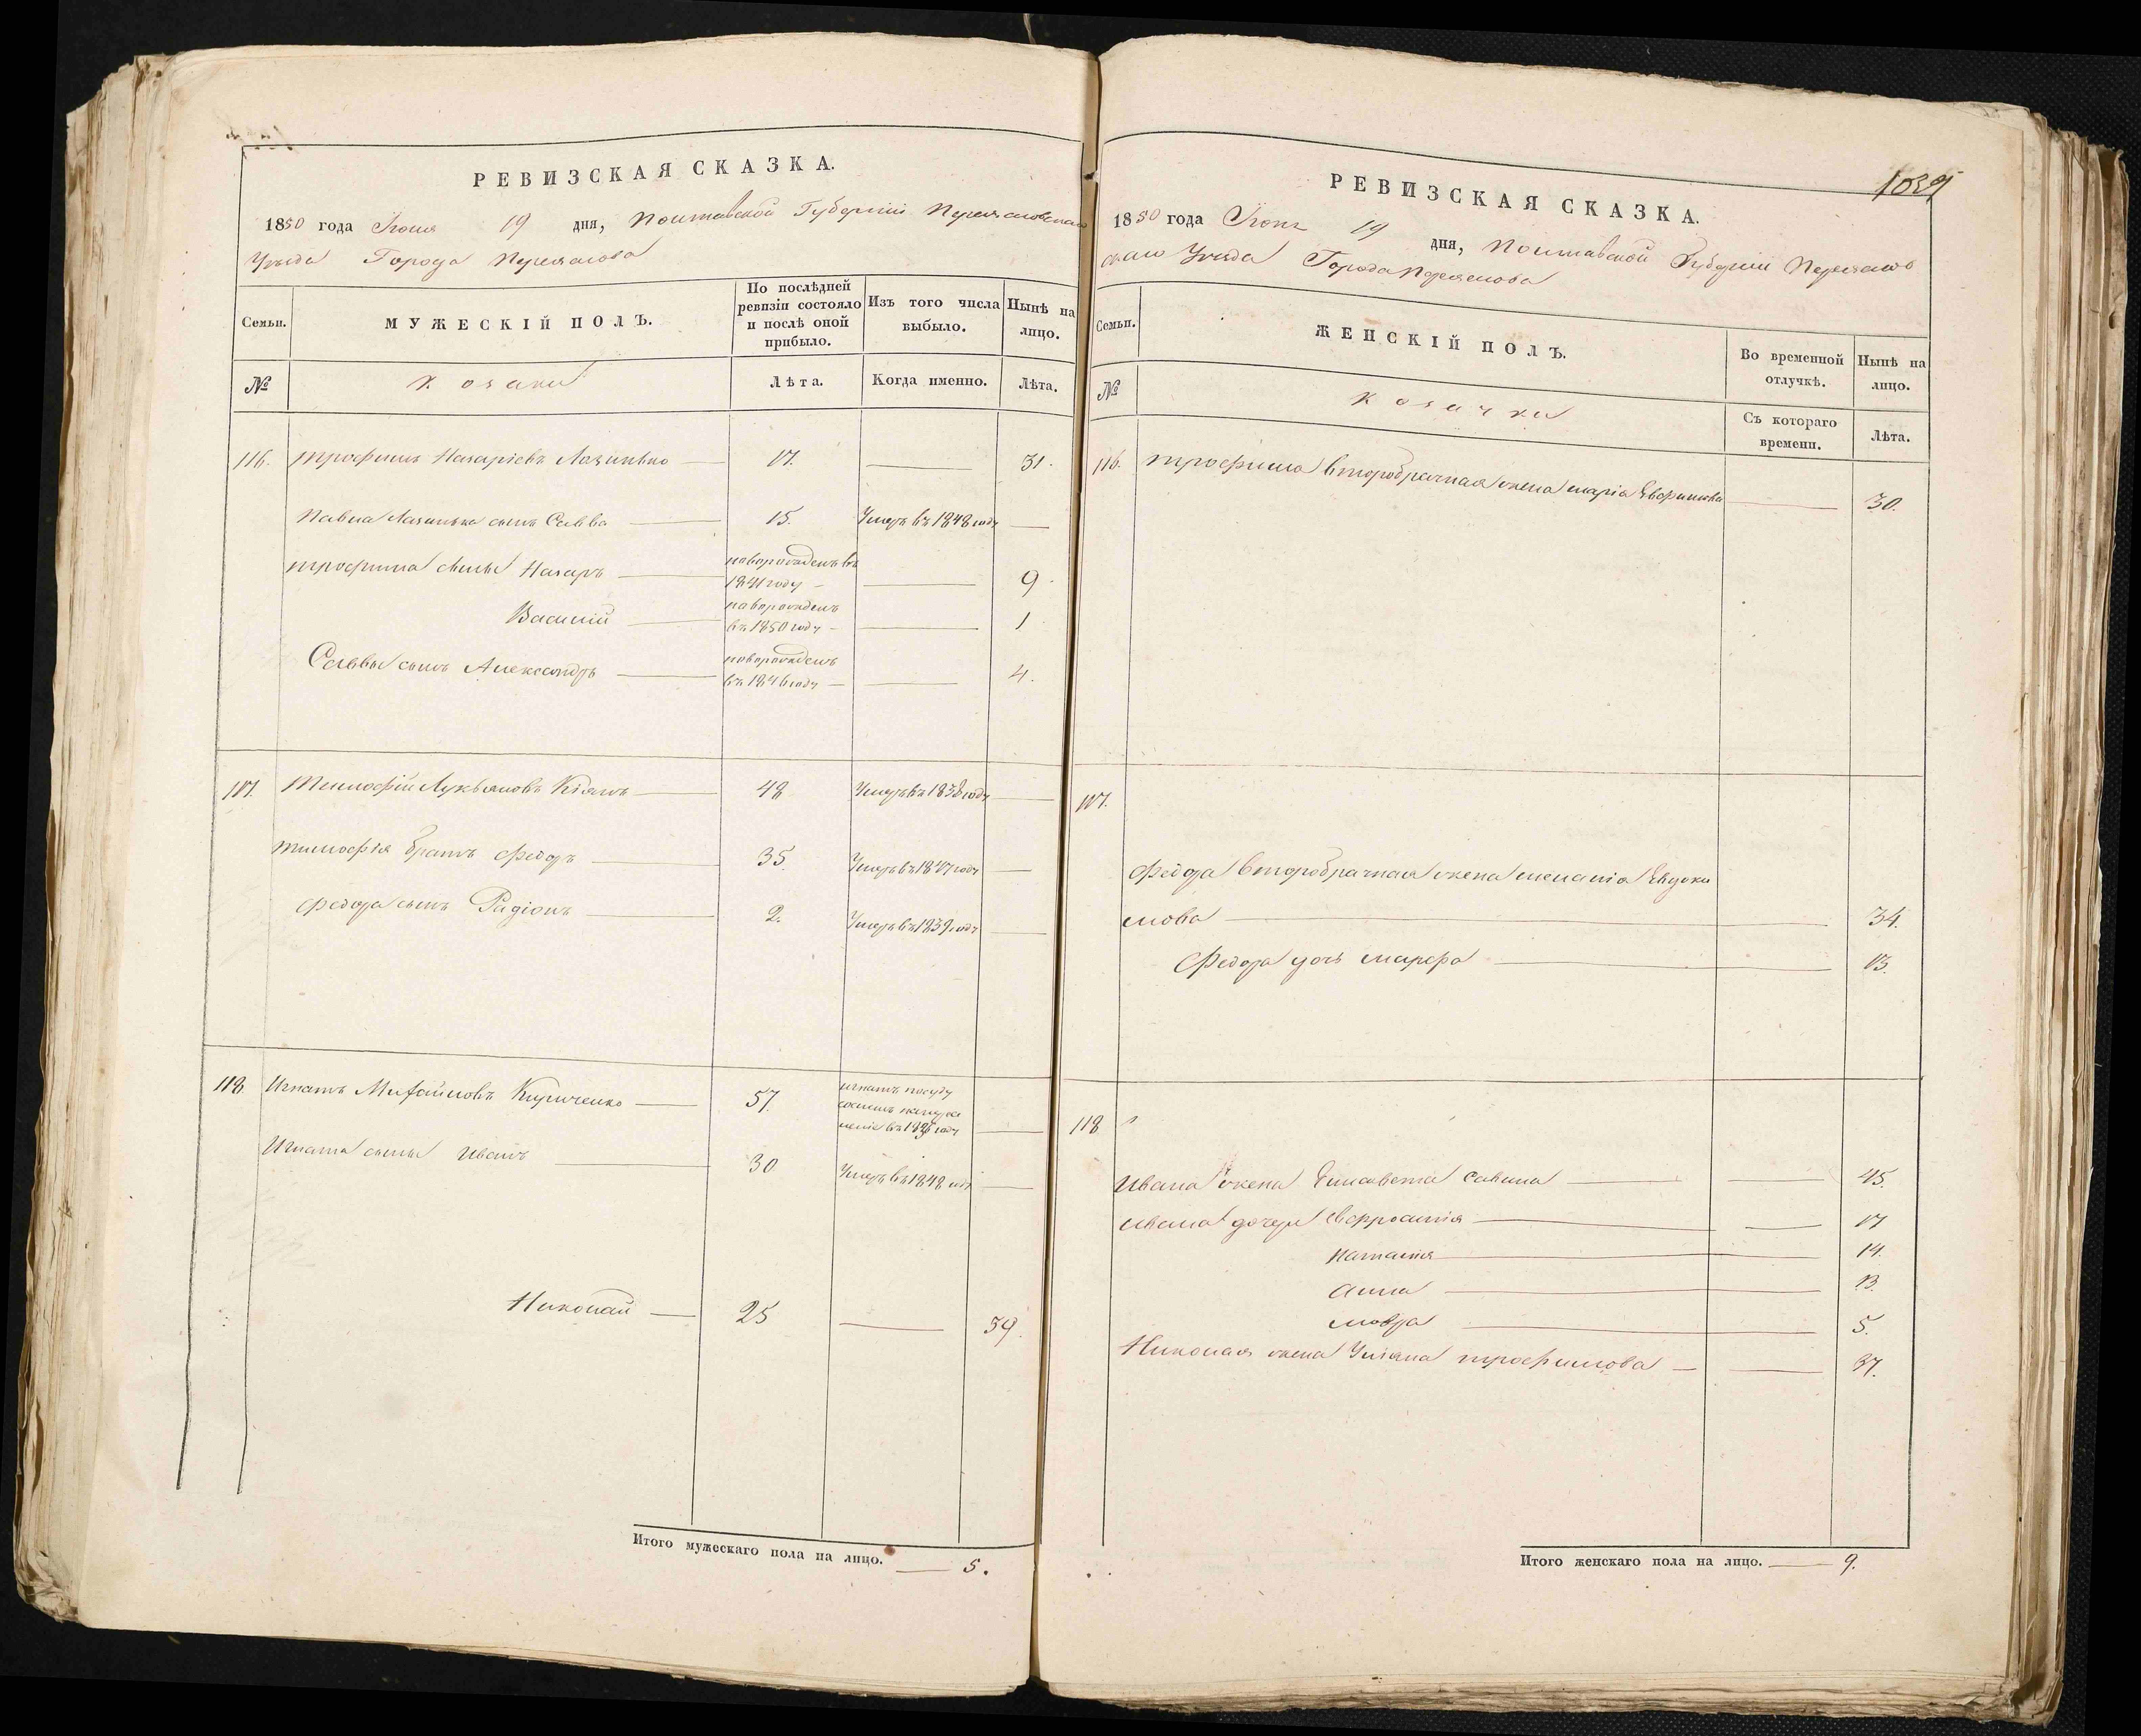 РЕВИЗСКАЯ СКАЗКА.
1850 года Июня 19 дня, Полтавской Губерніи Переяславскаго
Уѣзда Города Переяслова
Семьи.
МУЖЕСКІЙ ПОЛЪ.
По послѣдней ревизіи состояло и послѣ оной прибыло.
Изъ того числа выбыло.
Нынѣ на лицо.
№
Козаки
Лѣта.
Когда именно.
Лѣта.
116. Трофимъ Назаріевъ 17. 31.
Павла сынъ Савва 15. Умеръ въ 1848 году
Трофима сыны Назаръ новорожденъ въ 1841 году 9
Василій новорожденъ въ 1850 году 1
Саввы сынъ Александръ новорожденъ въ 1846 году 4.
117. Тимофій Лукьяновъ Кіянъ 48 Умеръ въ 1838 году
Тимофія братъ Федоръ 35 Умеръ въ 1847 году
Федора сынъ Радіонъ 2. Умеръ въ 1839 году
118 Игнатъ Михайловъ Кириченко 57 Игнатъ по суду
въ году
Игната сыны Иванъ 30 Умеръ въ 1848 году
Николай 25 39.
Итого мужескаго пола на лицо. 5.
1039
РЕВИЗСКАЯ СКАЗКА.
1850 года Июня 19 дня, Полтавской Губерніи Переяслов
скаго Уѣзда Города Переяслова
Семьи.
ЖЕНСКІЙ ПОЛЪ.
Во временной отлучкѣ.
Нынѣ на лицо.
№
Козачки
Съ котораго времени.
Лѣта.
116. Трофима второбрачная жена Марія Евфимова 30.
117.
Федора второбрачная жена Меланія Евдоки
мова 34.
Федора дочь Марфа 13.
118
Ивана жена Елисавета Савина 45.
Ивана дочери Евфросинія 17
Наталія 14.
Анна 13.
Мовра 5.
Николая жена Уліяна Трофимова 37.
Итого женскаго пола на лицо. 9.